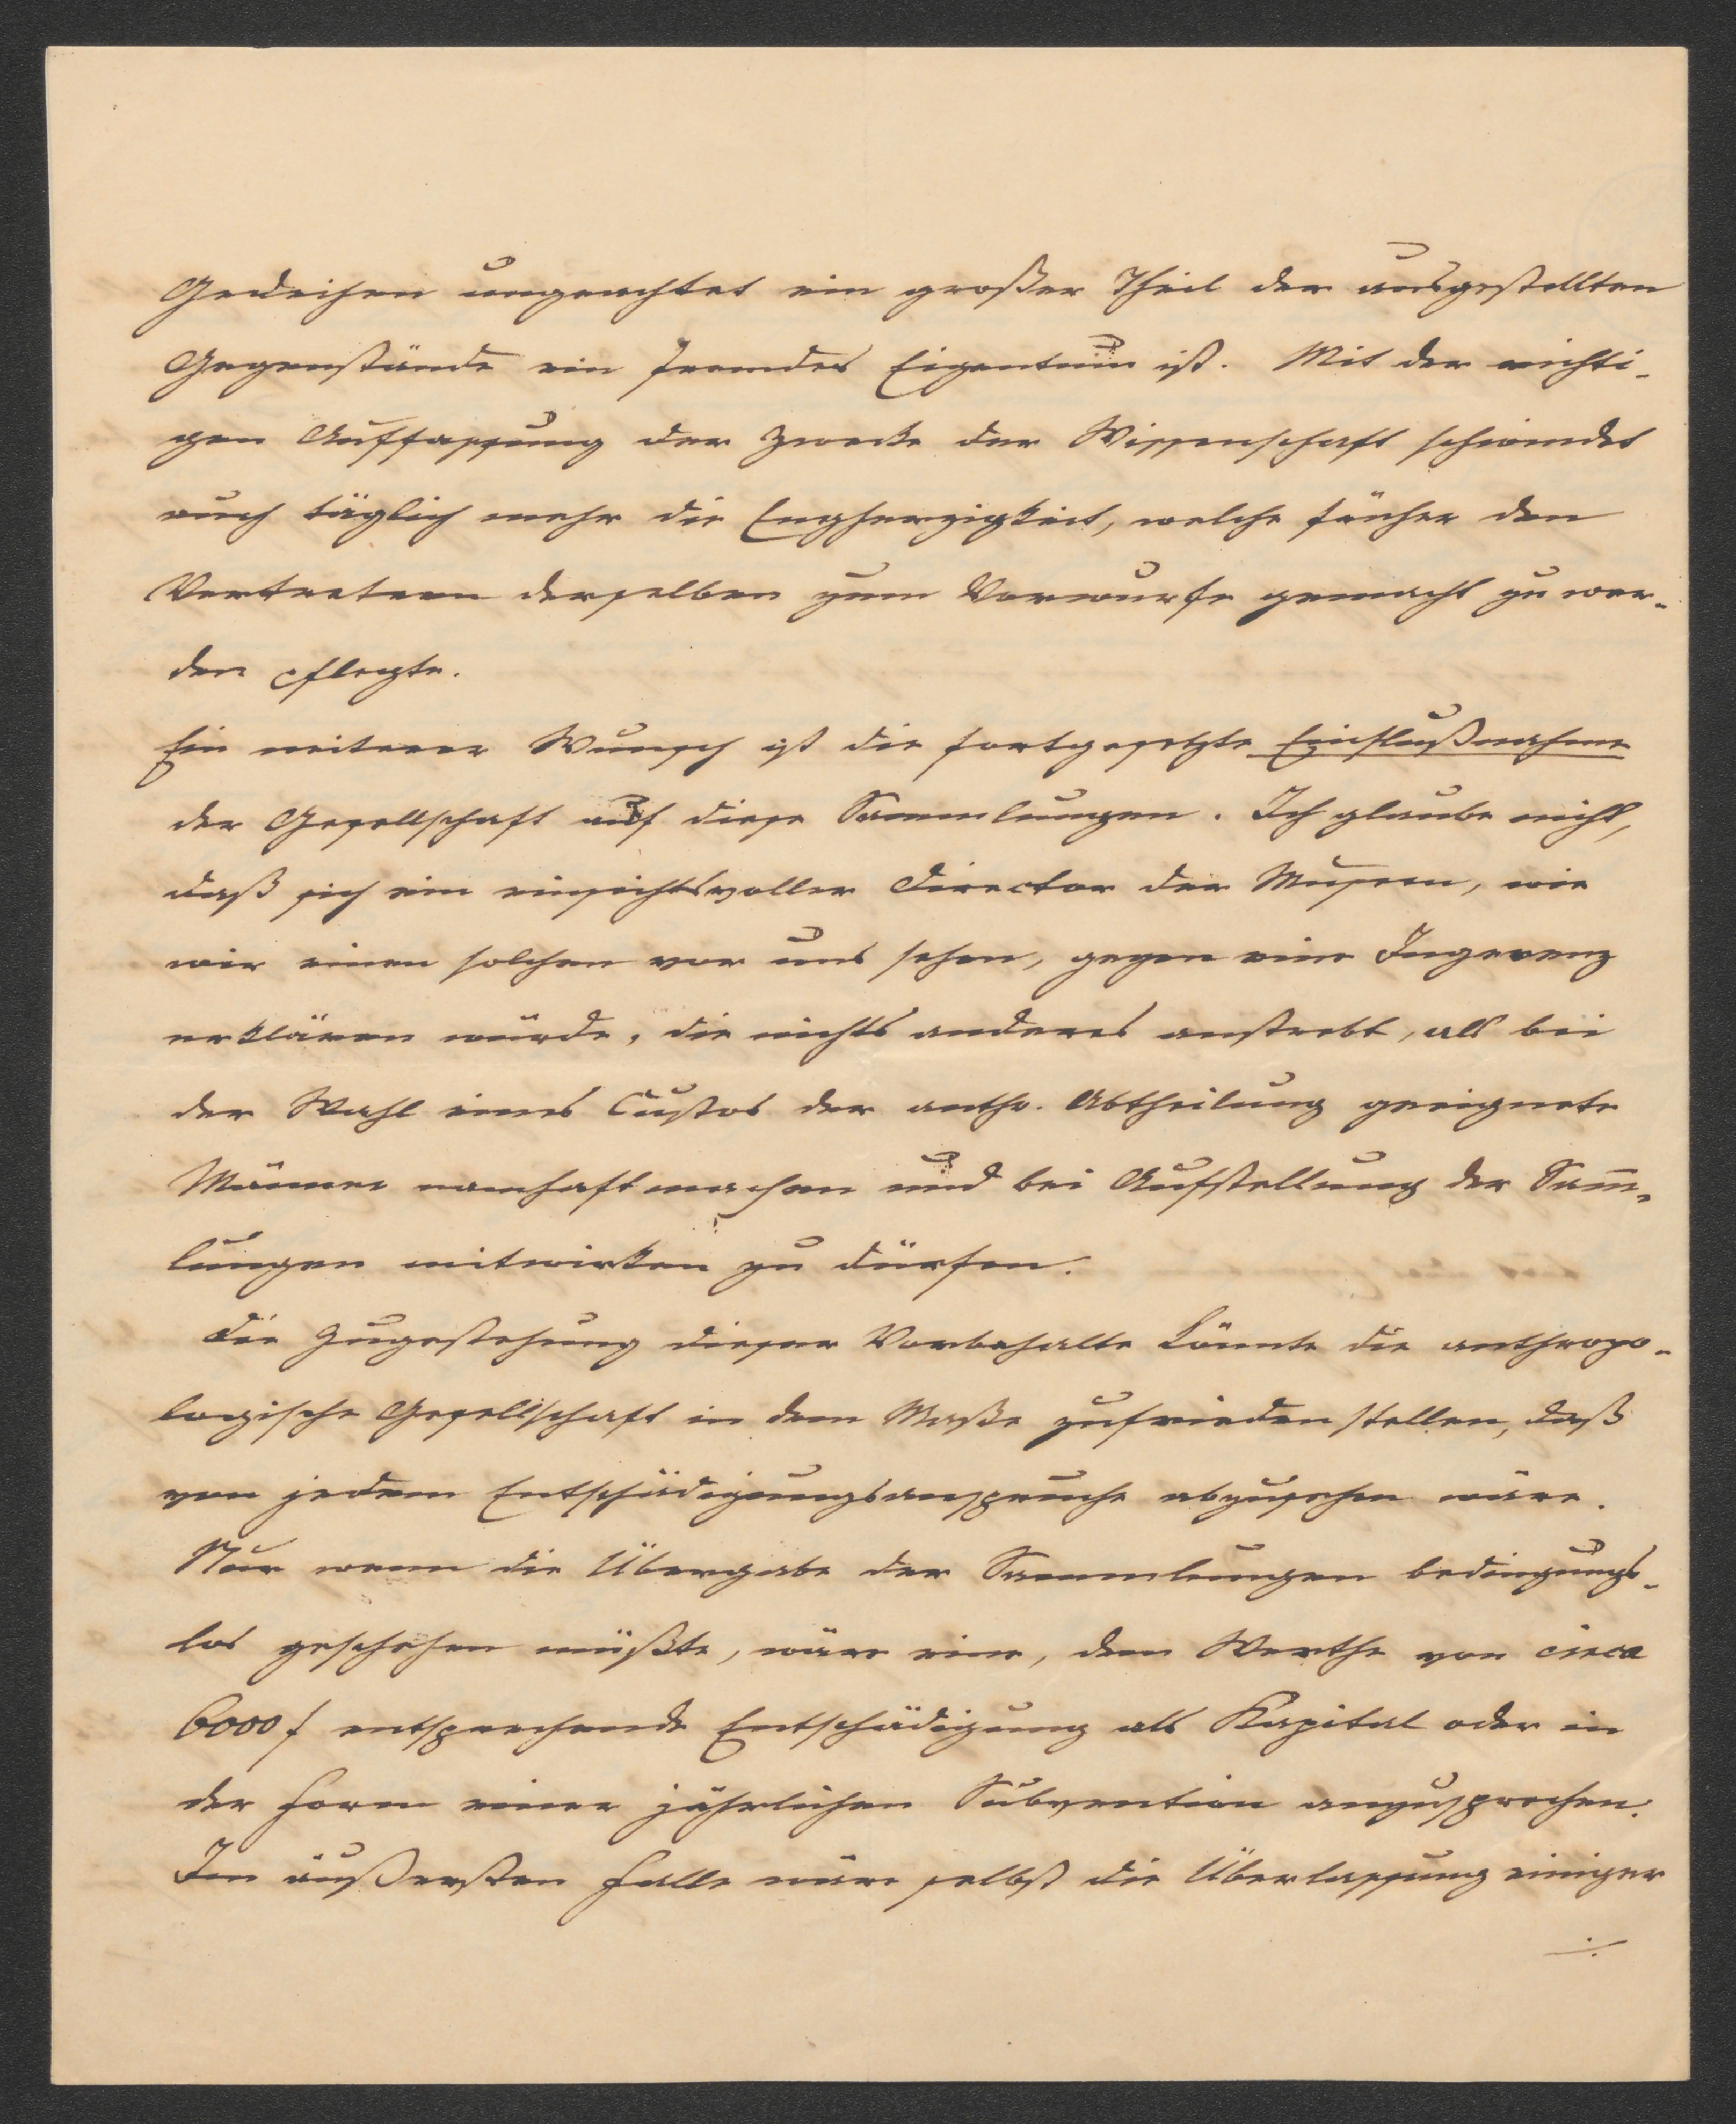 Gedeihen ungeachtet ein großer Theil der ausgestellten
Gegenstände ein fremdes Eigentum ist. Mit der richti-
gen Auffassung der Zwecke der Wissenschaft schwindet
auch täglich mehr die Engherzigkeit, welche früher den
Vertretern derselben zum Vorwurfe gemacht zu wer-
den pflegte.
Ein weiterer Wunsch ist die fortgesetzte Einflußnahme
der Gesellschaft auf diese Sammlungen. Ich glaube nicht,
daß sich ein einsichtsvoller Director der Museen, wie
wir einen solchen vor uns sehen, gegen eine Ingerenz
erklären würde, die nichts anderes anstrebt, als bei
der Wahl eines Custos der anthr. Abtheilung geeignete
Männer namhaft machen und bei Aufstellung der Sam̅-
lungen mitwirken zu dürfen.
Die Zugestehung dieser Vorbehalte könnte die anthropo-
logische Gesellschaft in dem Maße zufrieden stellen, daß
von jedem Entschädigungsanspruche abzusehen wäre.
Nur wenn die Übergabe der Sammlungen bedingungs-
los geschehen müßte, wäre eine, dem Werthe von circa
6000 f entsprechende Entschädigung als Kapital oder in
der Form einer jährlichen Subvention anzusprechen.
Im äußersten Falle wäre selbst die Überlassung einiger
./.